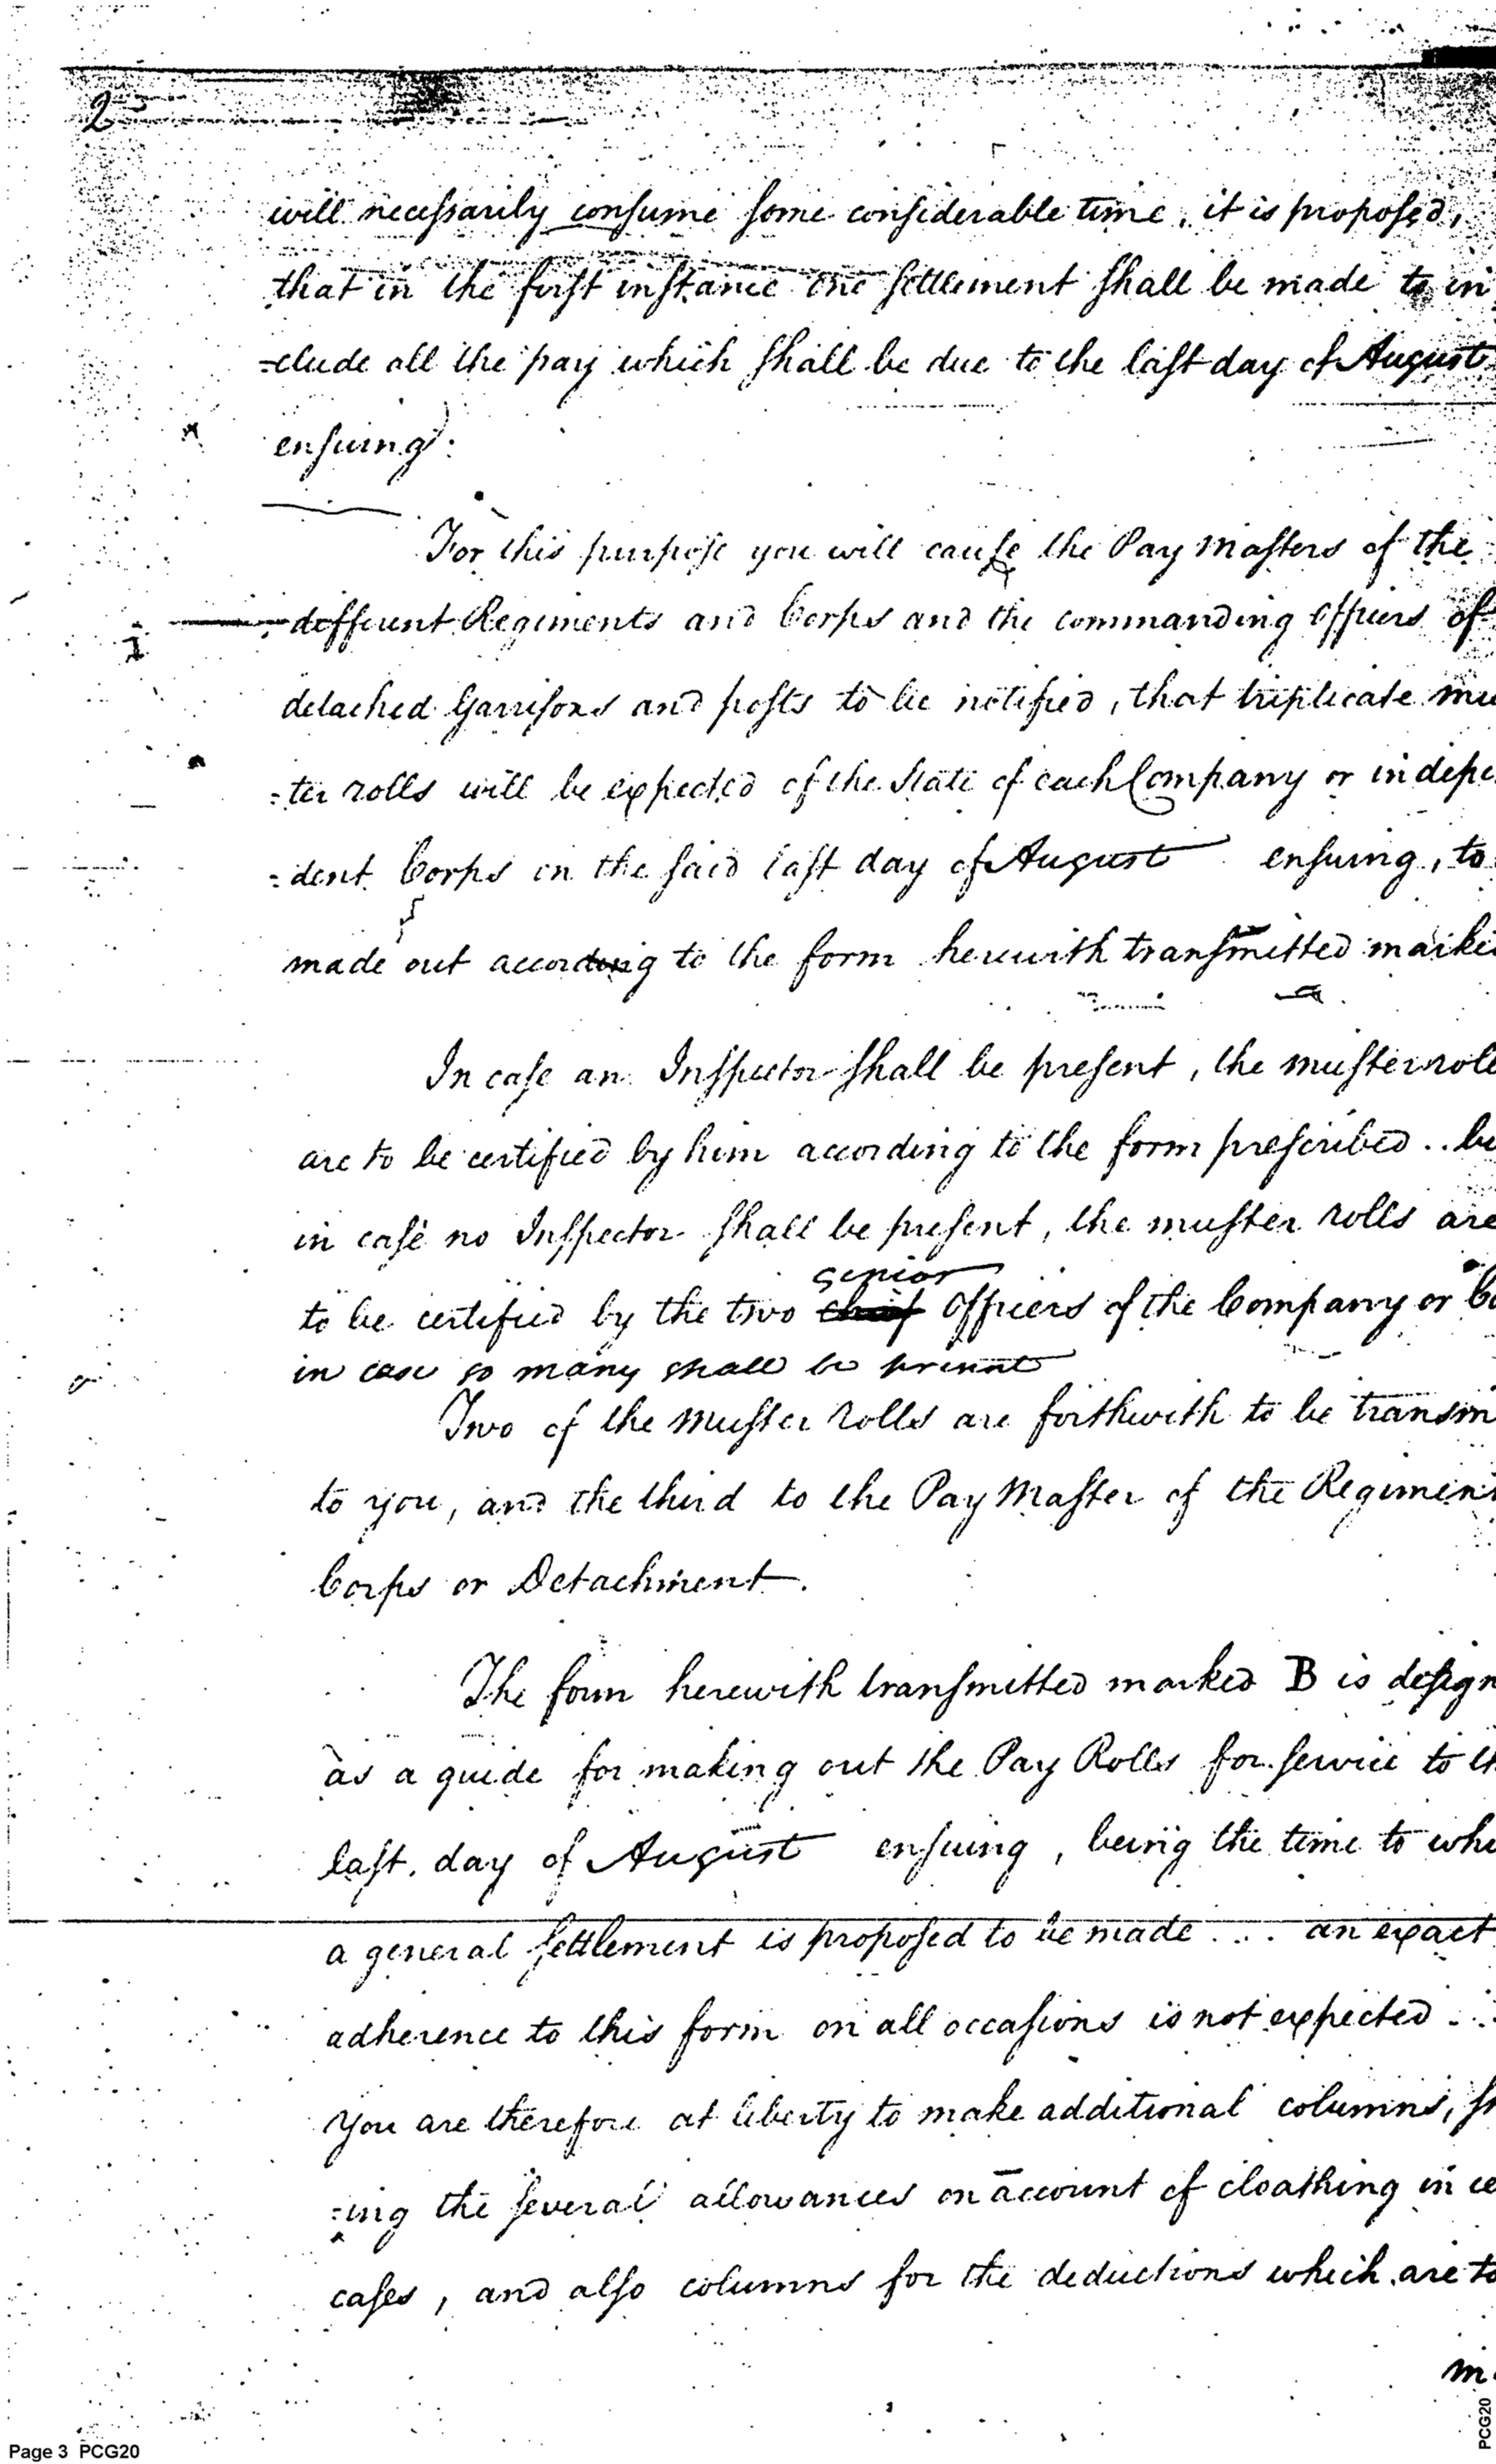 2
will necessarily consume some considerable time, it is proposed,
that in the first instance one settlement shall be made to in
-clude all the pay which shall be due to the last day of August
ensuing.
For this purpose you will cause the Pay Masters of the
different Regiments and Corps and the commanding officers of
detached Garrisons and posts to be notified, that triplicate mu
=ter rolls will be expected of the State of each Company or indepe
=dent Corps on the said last day of August ensuing, to
made out according to the form herewith transmitted marke
In case an Inspector shall be present, the muster roll
are to be certified by him according to the form prescribed .. bu
in case no Inspector shall be present, the muster rolls are
senior
to be certified by the two chief Officers of the Company or Co
in case so many shall be present
Two of the Muster Rolls are forthwith to be transm
to you, and the third to the Pay Master of the Regiment
Corps or Detachment.
The form herewith transmitted marked B is design
as a guide for making out the Pay Rolls for service to th
last day of August ensuing, being the time to whi
a general settlement is proposed to be made .... an exact
adherence to this form on all occasions is not expected ...
You are therefore at liberty to make additional columns, 
=ing the several allowances on account of cloathing in ce
cases, and also columns for the deductions which are to
m
Page 3 PCG20
PCG20